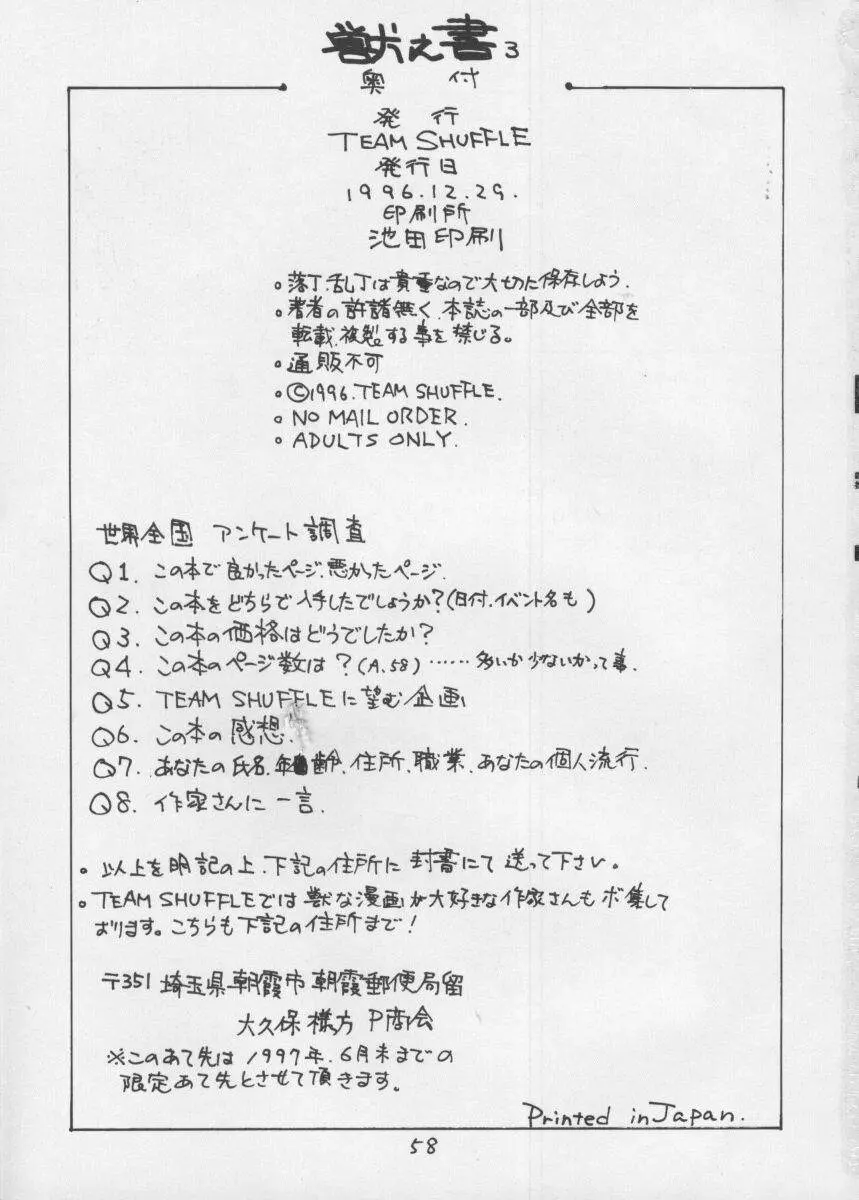 獣之書3
奥付
発行
TEAM SHUFFLE
発行日
1996.12.29.
印刷所
池田印刷
○落丁、乱丁は貴重なので大切に保存しよう.
○著者の許諾無く、本誌の一部及び全部を
転載、複製する事を禁じる。
○通販不可
○©1996.TEAM SHUFFLE.
○NO MAIL ORDER.
○ADULTS ONLY.
世界全国 アンケート調査
Q1. この本で良かったページ、悪かったページ.
Q2. この本をどちらで入手したでしょうか?(日付、イベント名も)
Q3. この本の価格はどうでしたか?
Q4. この本のページ数は?(A.58)……多いか少ないかって事.
Q5. TEAM SHUFFLEに望む企画
Q6. この本の感想.
Q7. あなたの氏名、年齢、住所、職業、あなたの個人流行.
Q8. 作家さんに一言.
○以上を明記の上、下記の住所に封書にて送って下さい。
○TEAM SHUFFLEでは獣な漫画が大好きな作家さんもボ集して
おります。こちらも下記の住所まで!
〒351 埼玉県朝霞市朝霞郵便局留
大久保様方 P商会
※このあて先は1997年.6月末までの
限定あて先とさせて頂きます。
Printed in Japan.
58